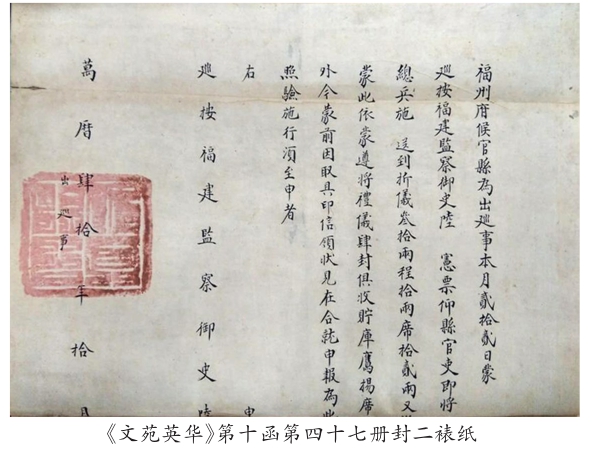 福州府候官縣為出廵事本月貳拾貳日蒙
廵按福建監察御史陸　憲票仰縣官吏即將
總兵施　送到折儀叁拾兩程拾兩席拾貳兩又
蒙此依蒙遵將禮儀肆封俱收貯庫鷹揚席
外今蒙前因取具印信領狀見在合就申報為此
照驗施行須至申者
右　申
廵按福建監察御史陸
萬曆肆拾年拾月
出廵事
《文苑英华》第十函第四十七册封二裱纸